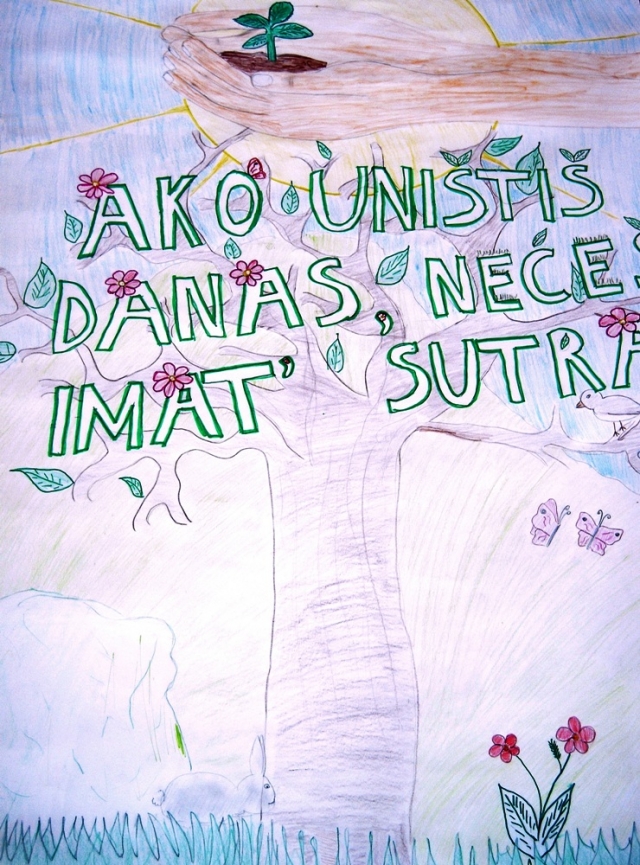 AKO UNIŠTIŠ
DANAS, NEĆEŠ
IMAT' SUTRA